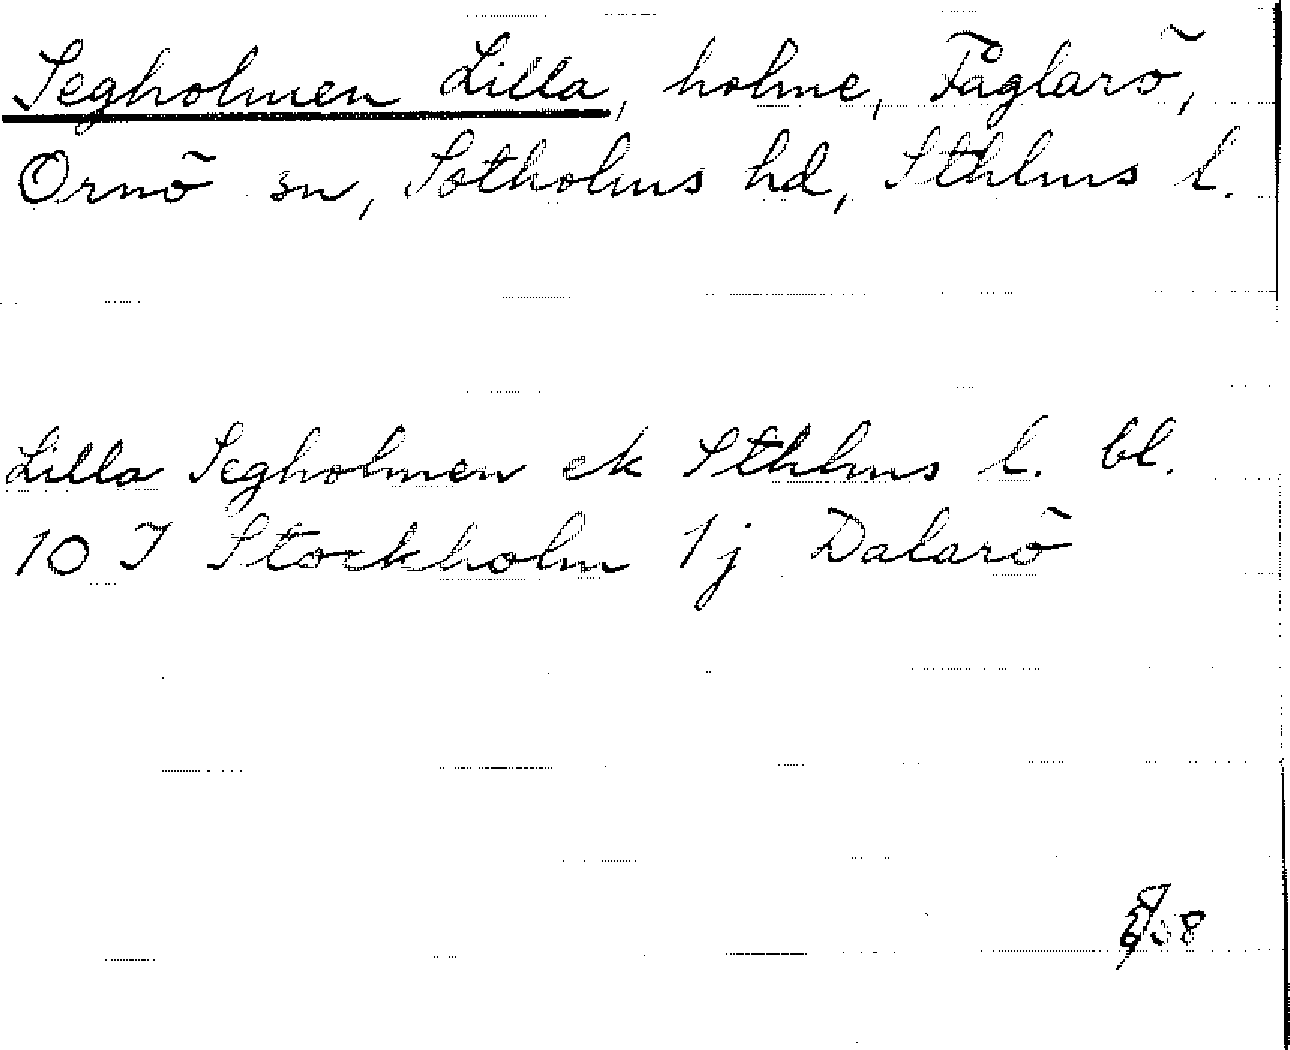 Segholmen Lilla, holme, Fåglarö,
Ornö sn, Sotholms hd, Sthlms l.
Lilla Segholmen ek Sthlms l. bl.
10 I Stockholm 1j Dalarö